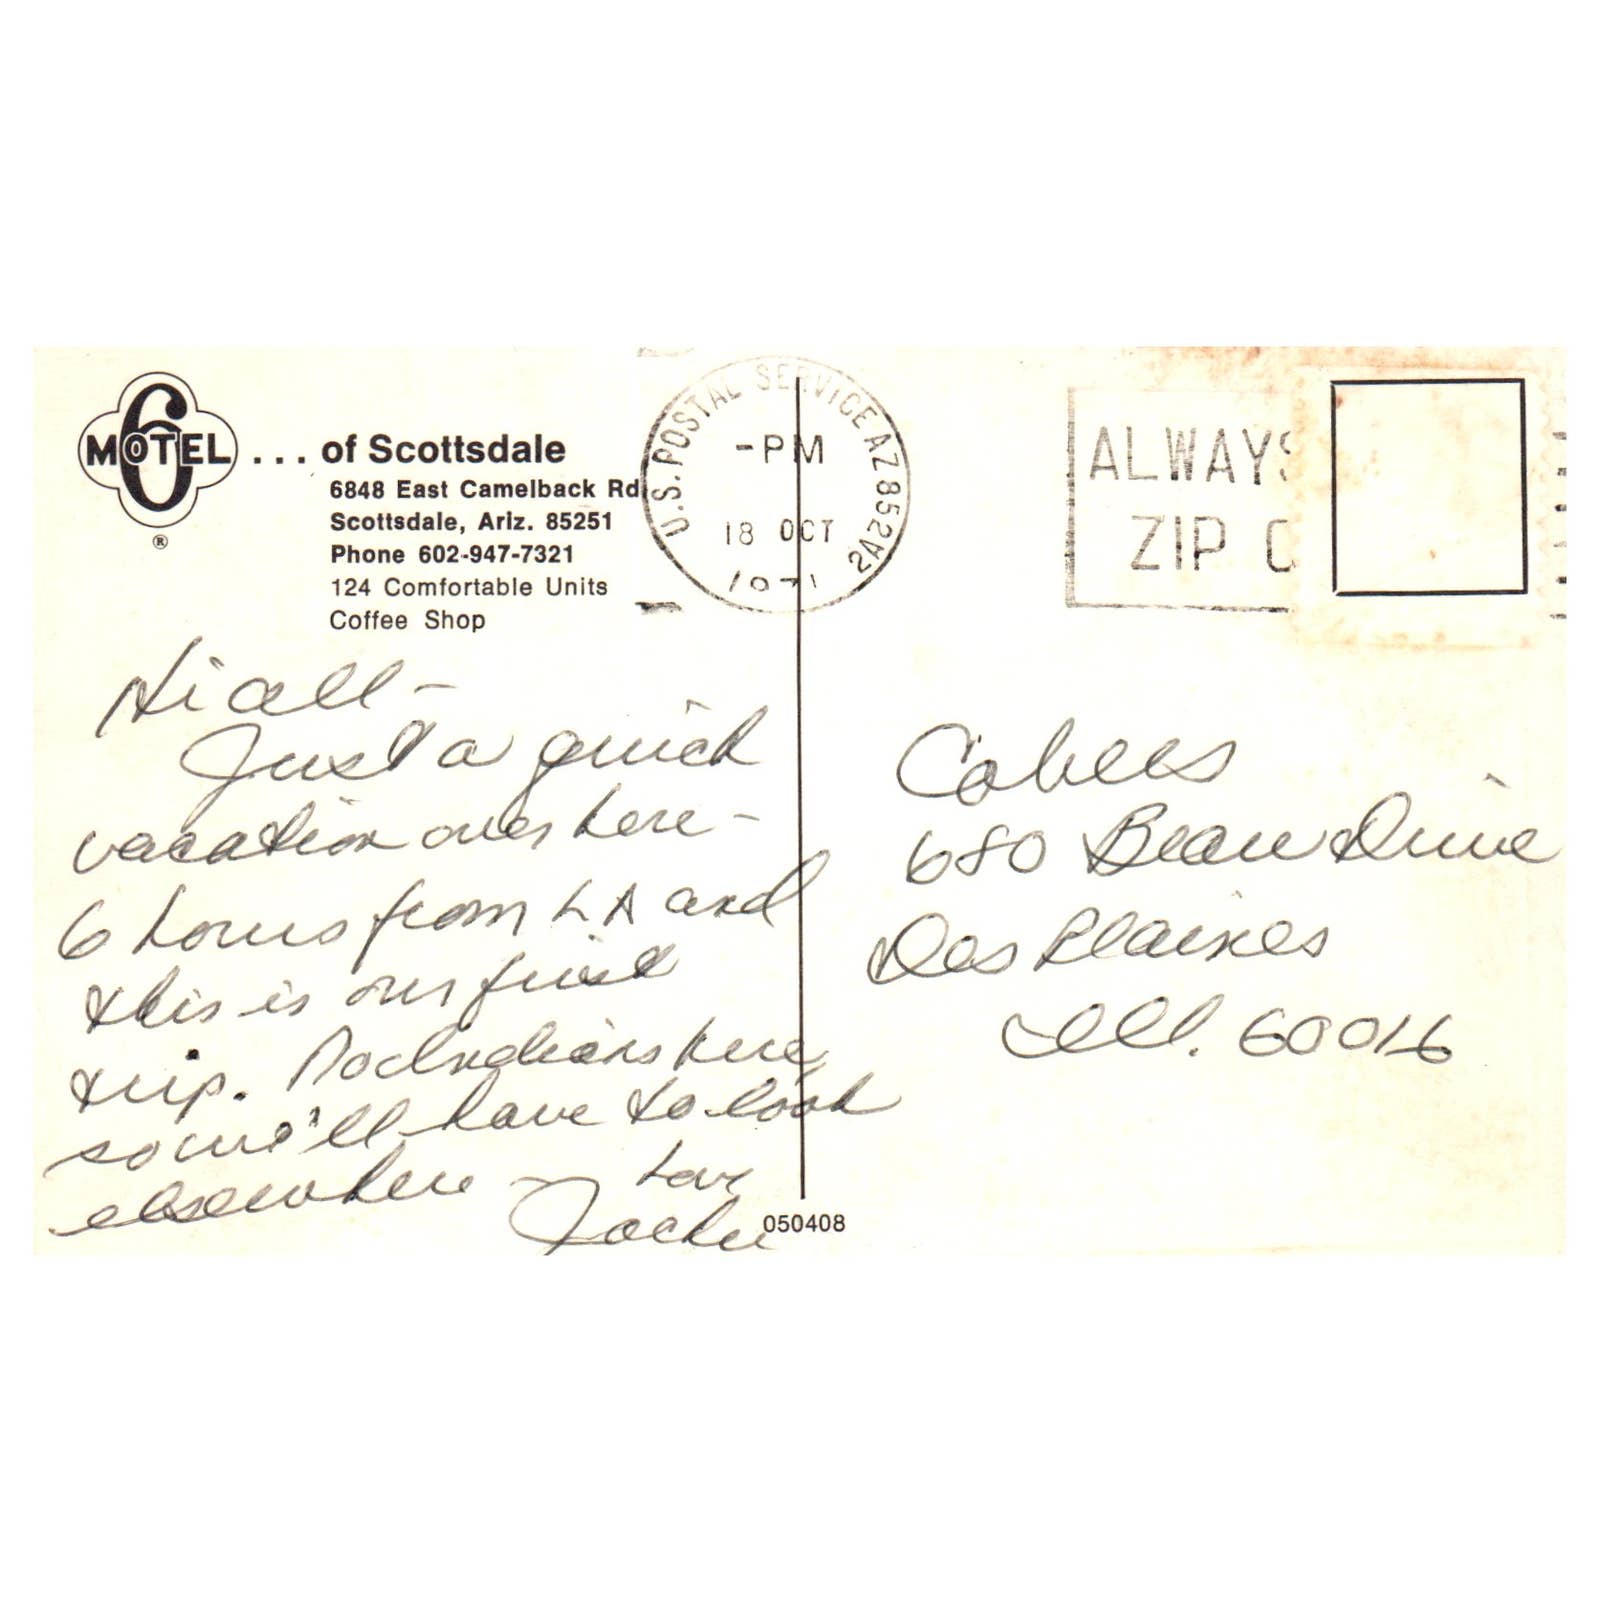 MOTEL 6 ... of Scottsdale
®
6848 East Camelback Rd
Scottsdale, Ariz. 85251
Phone 602-947-7321
124 Comfortable Units
Coffee Shop
U.S. POSTAL SERVICE AZ 852
-PM
18 OCT
1971
ALWAYS
ZIP C
Hi all -
Just a quick
vacation over here -
6 hours from LA and
this is our first
trip. No Indians here
so we'll have to look
elsewhere - Love
Jackie
050408
680 Beau Drive
Des Plaines
Ill. 60016